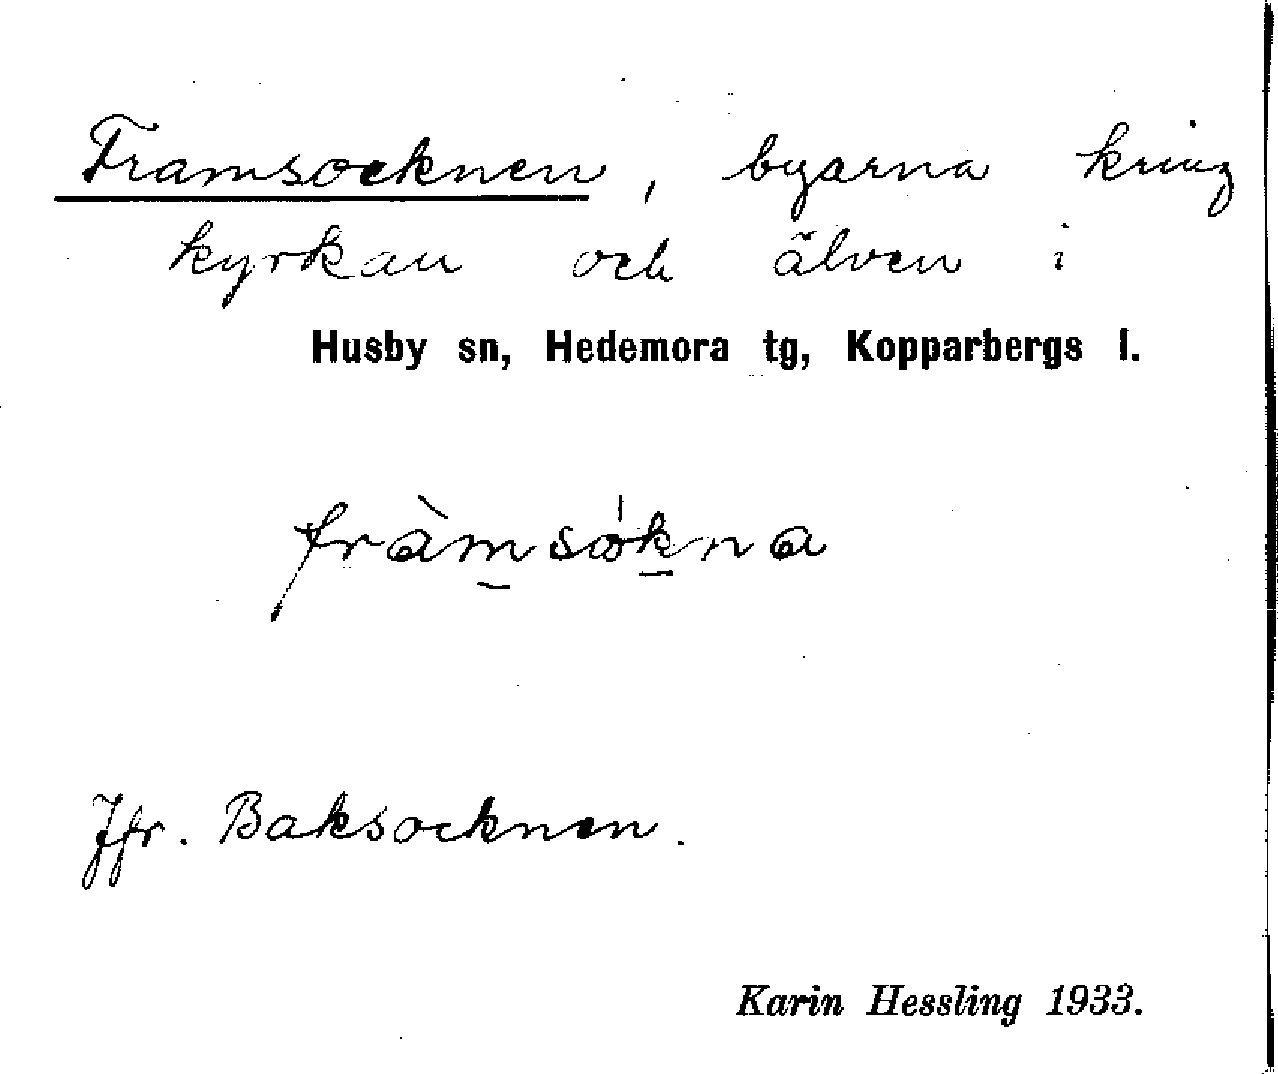 Framsocknen, byarna kring
kyrkan och älven i
Husby sn, Hedemora tg, Kopparbergs l.
fràm̲sók̲na
Jfr. Baksocknen.
Karin Hessling 1933.